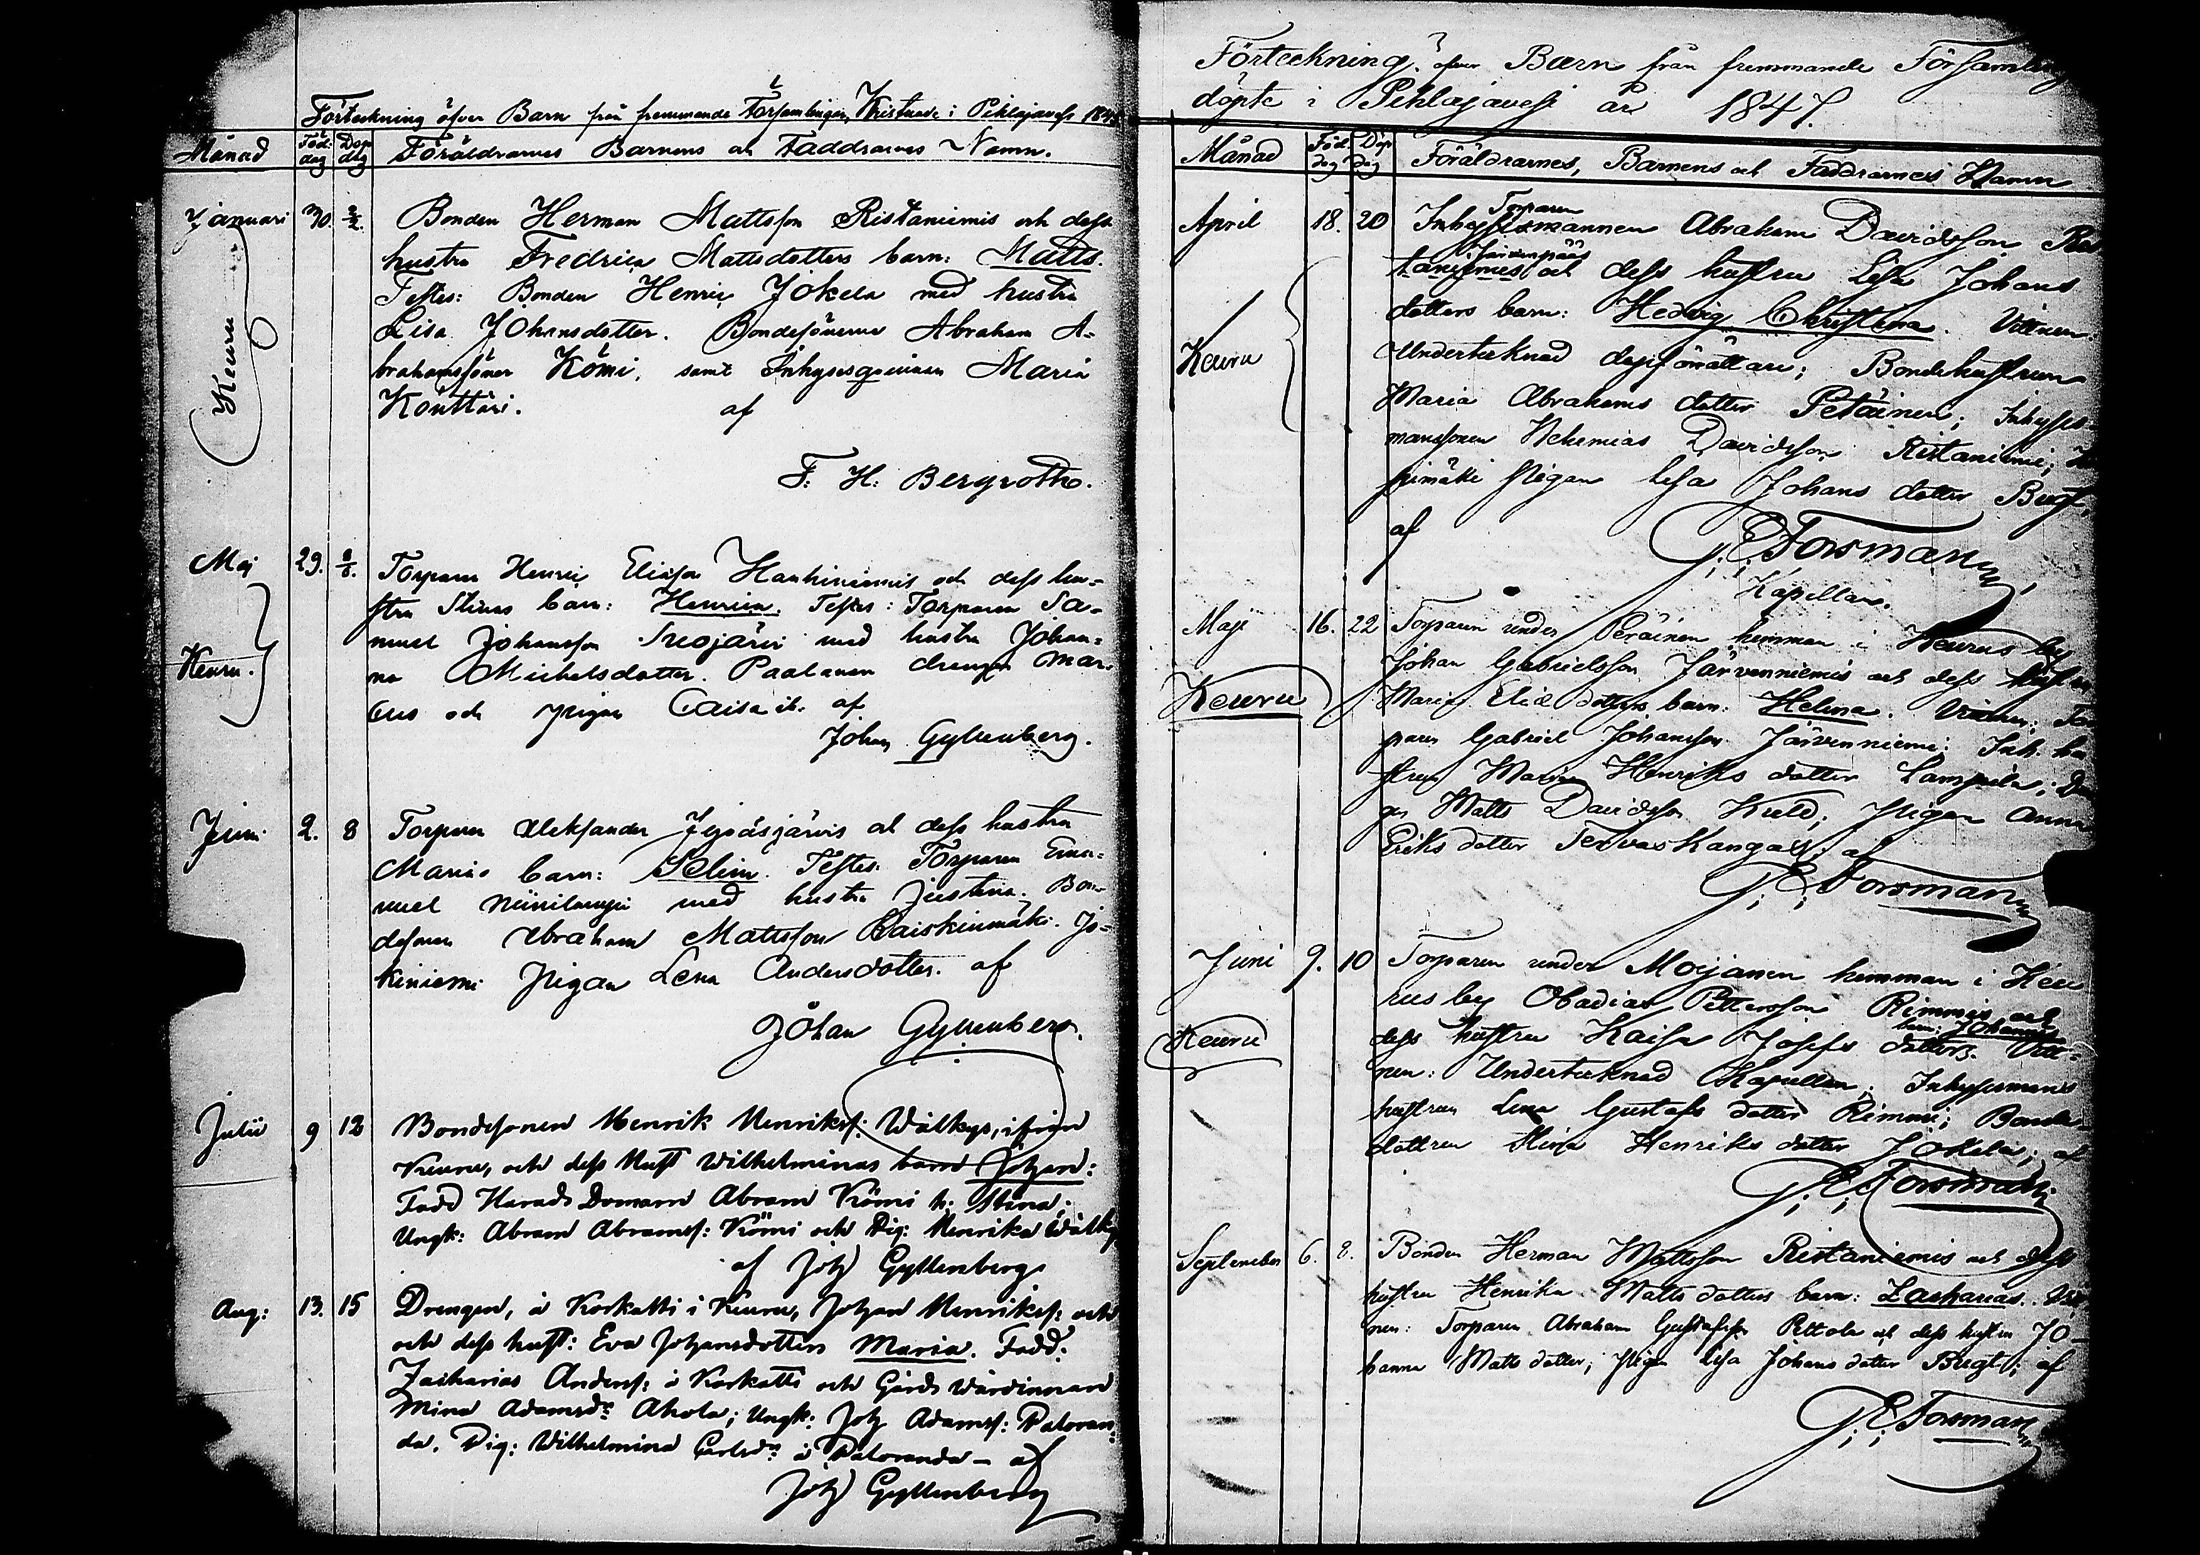 Förteckning öfver Barn från fremmande Församlingar, Kristnade i Pihlajavesi
Månad Föd. dag Dop dag Föräldrarnes Barnens och Faddrarnes Namn.
Januari 30. 2/2. Bonden Herman Mattsson Ristaniemis och dess
hustru Fredrica Mattsdotters barn: Matts.
Testes: Bonden Henric Jokela med hustru
Lisa Johansdotter. Bondesönerne Abraham A-
brahamssöner Kömi, samt Inhysesqvinnan Maria
Könttäri. af
Keuru
F. H. Bergroth.
Maj 29. Torparen Henric Eliasson Hauhiniemis och dess hu-
stru Stinas barn: Henrica. Testes: Torparen Sa-
muel Johansson med hustru Johan-
na Michelsdotter. Paalanen drengen Mar-
cus och pigan Caisa ib. af
Keuru.
Johan Gyllenberg.
Juni 2. 8 Torparen Aleksander Jypäsjärvis och dess hustru
Marias barn: Selim. Testes: Torparen Ema-
nuel med hustru Justina. Bon-
desonen Abraham Mattsson Raiskinmäki. Jo-
kiniemi Pigan Lena Andersdotter. af
Johan Gyllenberg.
Julii 9 12 Bondesonen Henrik Henrikss: Wälkys, ifrån
Keuru, och dess Hust Wilhelminas barn Johan:
Fadd Härads Domarn Abram Kömi h: Stina;
Ungk: Abram Abramss: Kömi och Pig: Henrika
af Joh Gyllenberg
Aug: 13. 15 Drengen, å Korkatti i Keuru, Johan Henrikss: och
och dess hust: Eva Johansdotters Maria. Fadd:
Zacharias Anderss: å Korkatti och Gårds Wärdinnan
Mina Adamsdr Ahola; Ungk: Joh Adamss: Paloran-
da. Pig: Wilhelmina Carlsdr å Paloranda – af
Joh Gyllenberg
Förteckning öfver Barn från fremmande
döpte i Pihlajavesi år 1847.
Månad Föd. dag Döp dag Föräldrarnes, Barnens och Faddrarnes Namn
Torparen
April 18. 20 Inhysesmannen Abraham Davidsson
och dess hustru Lisa Johans
dotters barn: Hedvig Christina. Vittnen:
Keuru Undertecknad dopförrättare; Bondehustrun
Maria Abrahams dotter Petäinen; Inhyses-
manssonen Nehemias Davidsson Ristaniemi;
Pigan Lisa Johans dotter
af
G. E. Forsman
Kapellan.
Maji 16. 22 Torparen under hemman i Keurus by
Johan Gabrielsson Järvenniemis och dess
Keuru Maria Elias dotters barn: Helena. Vittnen:
paren Gabriel Johansson Järvenniemi; Inh. hu
strun Maria Henriks dotter Lampila;
Matts Davidsson; Pigan Anna
Eriks dotter Tervaskangas; af
G. E. Forsman
Juni 9. 10 Torparen under Moijanen hemman i Keu
rus by Obadias Pettersson Rimmis och
barn: Johannes
dess hustru Kaisa Josefs dotters. Vitt-
Keuru nen: Undertecknad Kapellan; Inhysesmans
hustrun Lena Gustafs dotter Rimmi; Bonde-
dottren Stina Henriks dotter Jokela; af
G. E. Forsman
September 6. 8. Bonden Herman Mattsson Ristaniemis och dess
hustru Henrika Matts dotters barn: Zacharias.
nen: Torparen Abraham Gustafsson och dess hustru Jo-
hanna Matts dotter; Pigan Lisa Johans dotter; af
G. E. Forsman